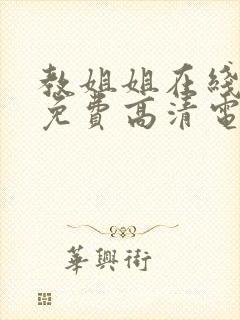 教姐姐在线
免費高清電
華興街